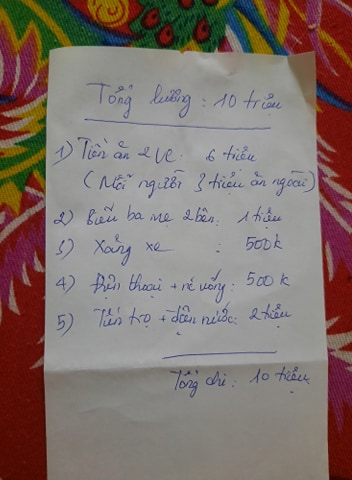 Tổng lương : 10 triệu
1) Tiền ăn 2 VC : 6 triệu
( Mỗi người 3 triệu ăn ngoài )
2) Biếu ba mẹ 2 bên : 1 triệu
3) Xăng xe : 500k
4) Điện thoại + nc uống : 500k
5) Tiền trọ + điện nước : 2 triệu
Tổng chi : 10 triệu